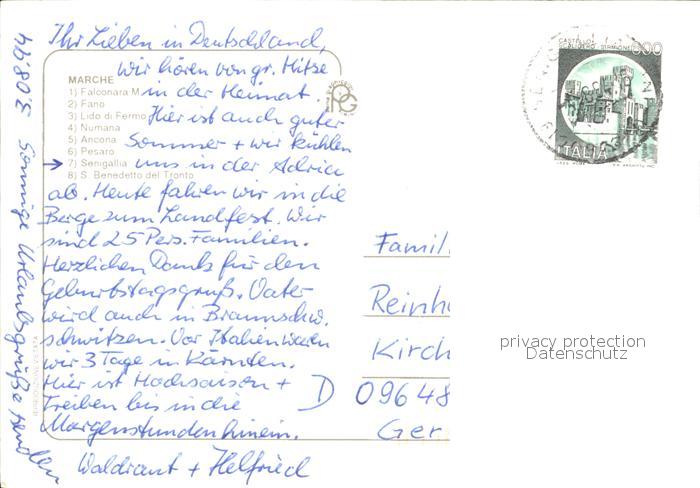 Ihr Lieben in Deutschland,
wir hören von gr. Hitze
in der Heimat.
Hier ist auch guter
Sommer + wir kühlen
uns in der Adria
ab. Heute fahren wir in die
Berge zum Landfest. Wir
sind 25 Pers. Familien.
Herzlichen Dank für den
Geburtstagsgruß. Vater
wird auch in Braunschw.
schwitzen. Vor Italien waren
wir 3 Tage in Kärnten.
Hier ist Hochsaison +
Treiben bis in die
Morgenstunden hinein.
Waltraut + Helfried
3.08.94 Sonnige Urlaubsgrüße senden
MARCHE
1) Falconara M
2) Fano
3) Lido di Fermo
4) Numana
5) Ancona
6) Pesaro
7) Senigallia
8) S. Benedetto del Tronto
CASTELLO
SCALIGERO - SIRMIONE
ITALIA
Famil
Reinh
Kirch
D 09648
Ger
privacy protection
Datenschutz